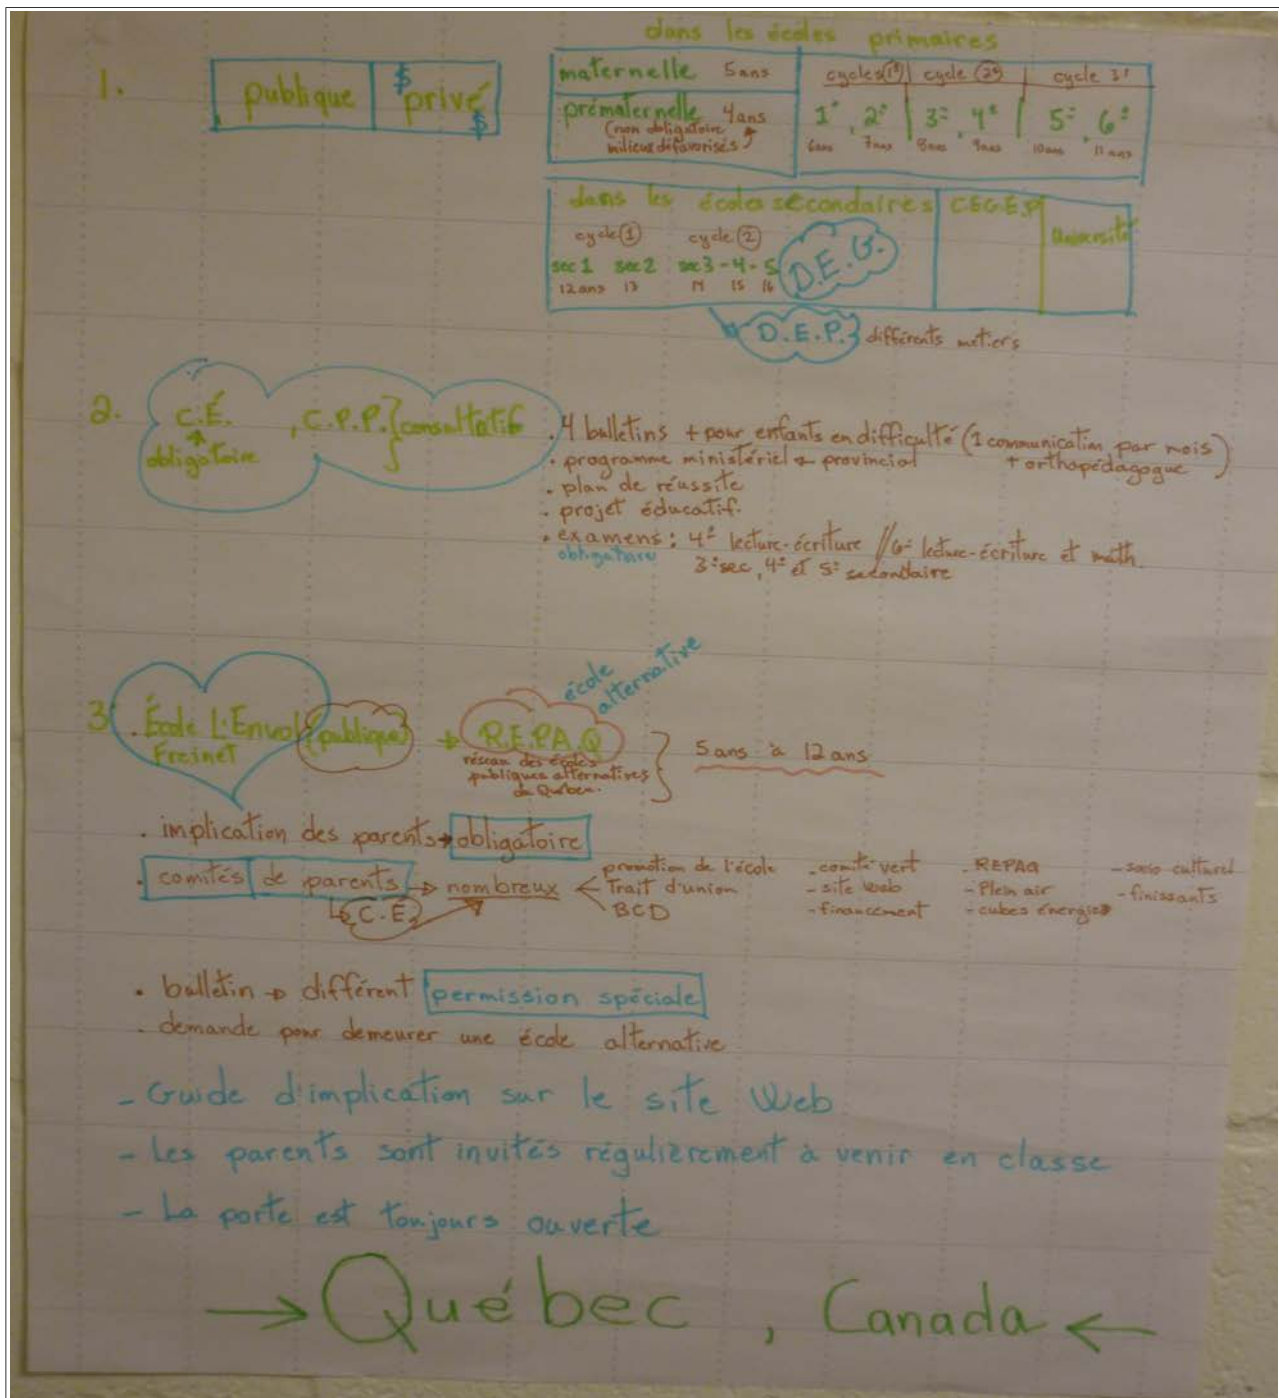 dans les écoles primaires
1. publique $ privé $
maternelle 5ans
prématernelle 4ans
(non obligatoire
milieux défavorisés)
cycle 1 cycle 2 cycle 3
1e, 2e | 3e, 4e | 5e, 6e
6ans 7ans 8ans 9ans 10ans 11ans
dans les écoles secondaires CEGEP Université
cycle 1 cycle 2
sec 1 sec 2 sec 3 - 4 - 5
12ans 13 14 15 16
D.E.G.
D.E.P. } différents métiers
2. C.É. , C.P.P. } consultatif
obligatoire
. 4 bulletins + pour enfants en difficulté (1 communication par mois)
+ orthopédagogue
. programme ministériel → provincial
. plan de réussite
. projet éducatif.
. examens : 4e lecture-écriture // 6e lecture-écriture et math.
obligatoire 3e sec, 4e et 5e secondaire
école
alternative
3. École L'Envol (publique) → R.E.P.A.Q
Freinet
réseau des écoles
publiques alternatives
du Québec.
5ans à 12ans
. implication des parents → obligatoire
. comités de parents → nombreux
↳ C.É.
promotion de l'école
Trait d'union
BCD
- comité vert
- site web
- financement
- REPAQ
- Plein air
- cubes énergie
- socio culturel
- finissants
. bulletin → différent permission spéciale
. demande pour demeurer une école alternative
- Guide d'implication sur le site Web
- Les parents sont invités régulièrement à venir en classe
- La porte est toujours ouverte
→ Québec, Canada ←